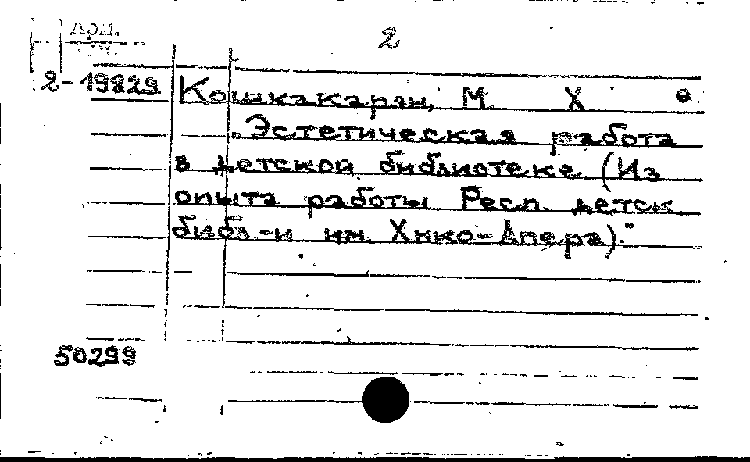 Арм.
2
2-19829
Кошкакарян, М. Х.
„Эстетическая работа
в детской библиотеке (Из
опыта работы Респ. детск.
библ-и им. Хнко-Апера)."
50299